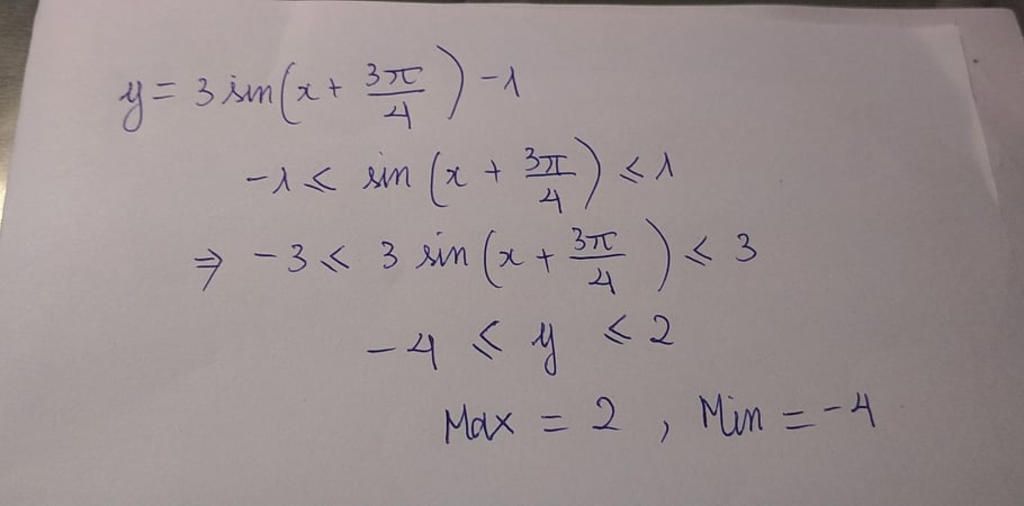 y = 3 sin(x + 3π/4) - 1
-1 ⩽ sin(x + 3π/4) ⩽ 1
⇒ -3 ⩽ 3 sin(x + 3π/4) ⩽ 3
-4 ⩽ y ⩽ 2
Max = 2 , Min = -4